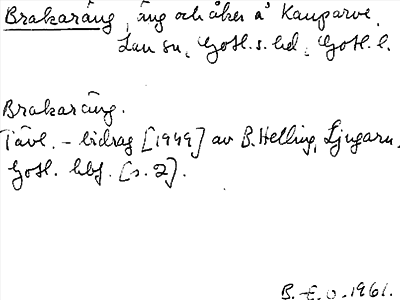 Brakaräng, äng och åker å Kauparve,
Lau sn, Gotl. s. hd, Gotl. l.
Brakaräng.
Tävl.-bidrag [1949] av B. Helling, Ljugarn.
Gotl. hbf. [s. 2].
B. E. O. 1961.